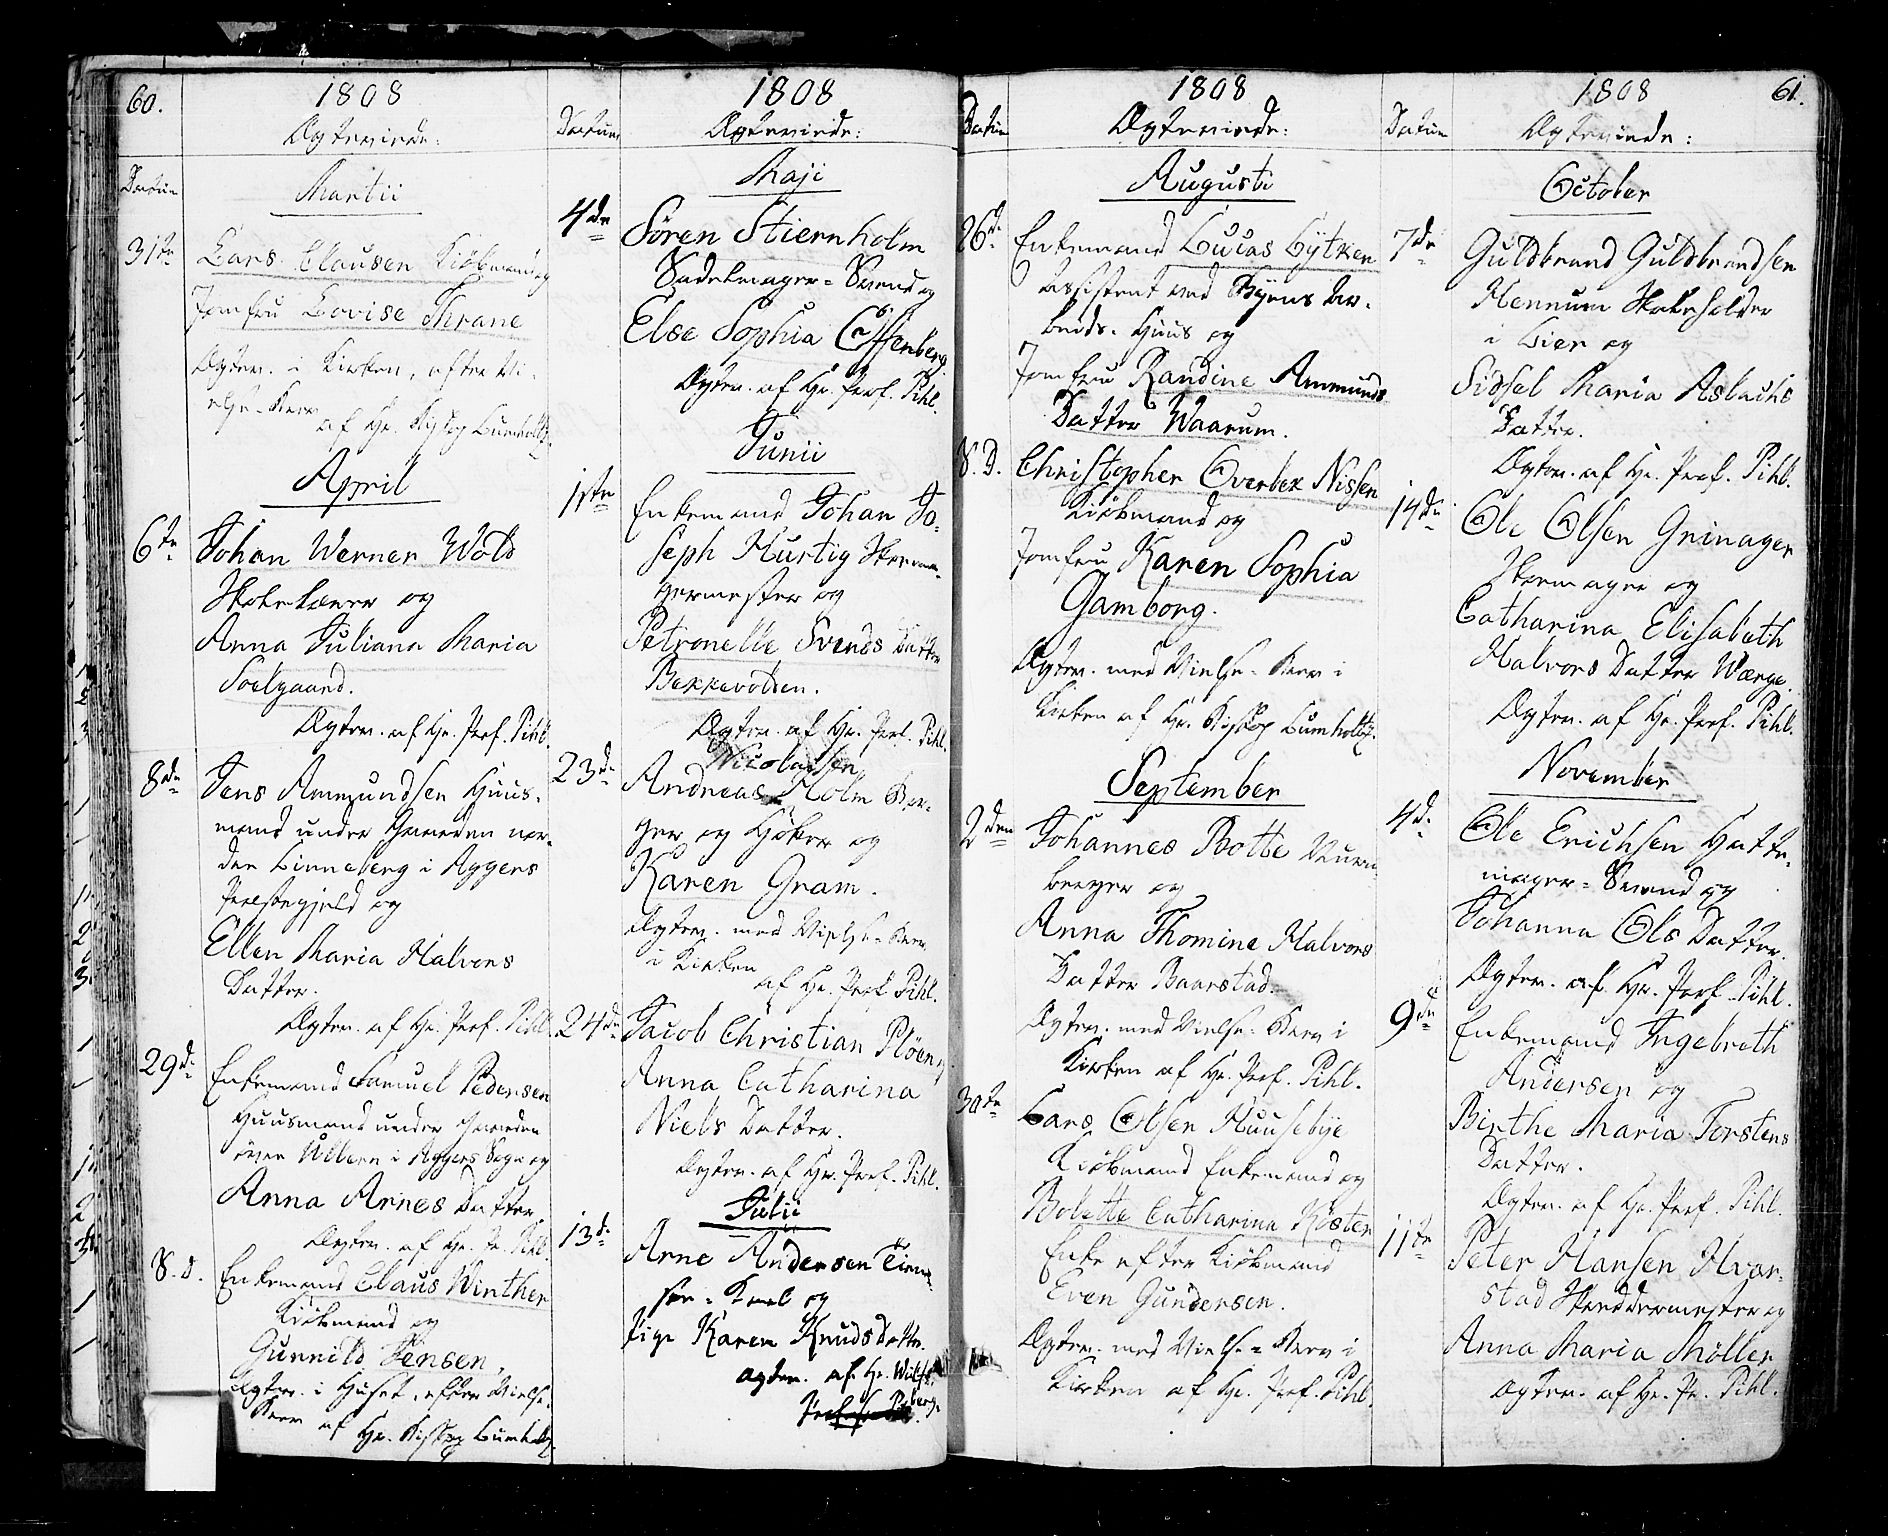 60.
1808
Ægteviede:
Datum
Martii
31te
Lars Clausen Kiøbmand og
Jomfru Lovise Thrane
Ægtev. i Kirken, efter Vi-
else-Brev
af Hr. Biskop Bumholtz
April
6te
Johan Werner Wold
Skolelærer og
Anna Juliana Maria
Soelgaard.
Ægtev. af Hr. Prof. Pihl.
8de
Jens Ammundsen Huus-
mand under Gaarden nor-
dre Linneberg i Aggers
Præstegjeld og
Ellen Maria Halvors
Datter.
Ægtev. af Hr. Prof. Pihl.
29de
Enkemand Samuel Pedersen
Huusmand under Gaarden
övre Ullern i Aggers Sogn og
Anna Arnes Datter
Ægtev. af Hr. Pr. Pihl.
S. D.
Enkemand Claus Winther
Kiøbmand og
Gunnild Jensen,
Ægtev. i Huset, efter Vielse-
Brev af Hr. Biskop Bumholtz
1808
Datum
Ægteviede:
Maji
4de
Søren Stiernholm
Sadelmager-Svend og
Else Sophia Offenberg
Ægtev. af Hr. Prof. Pihl.
Junii
1ste
Enkemand Johan Jo-
seph Hurtig Skoma-
germester og
Petronelle Svends Datter
Bekkevolden.
Ægtev. af Hr. Prof. Pihl.
Nicolaisen
23de
Andreas Holm Bor-
ger og Høker og
Karen Gram.
Ægtev. med Vielse-Brev
i Kirken
af Hr. Prof. Pihl.
24de
Jacob Christian Plöen og
Anna Catharina
Niels Datter.
Ægtev. af Hr. Prof. Pihl.
Julii
13de
Arne Andersen Tiene-
ste-Karl og
Pige Karen Knuds Datter
Ægtev. af Hr. Wulfs-
berg.
1808
Datum
Ægteviede:
Augusti
26de
Enkemand Lucas Lytken
Assistent ved Byens Ar-
beids-Huus og
Jomfru Randine Ammunds
Datter Waarum.
S. D.
Christopher Overbek Nissen
Kiøbmand og
Jomfru Karen Sophia
Gamborg.
Ægtev. med Vielse-Brev i
Kirken af Hr. Biskop Bumholtz.
September
2den
Johannes Botte Muur-
Anna Thomine Halvors
Datter Baarstad.
Ægtev. med Vielse-Brev i
Kirken af Hr. Prof. Pihl.
30te
Lars Olsen Huusebye
Kiøbmand Enkemand og
Bolette Catharina Köster
Enke efter Kiøbmand
Even Gundersen.
Ægtev. med Vielse-Brev i
Kirken af Hr. Prof. Pihl.
1808
61.
Datum
Ægteviede:
October
7de
Guldbrand Guldbrandsen
Hennum Skoleholder
i Lier og
Sidsel Maria Aslachs
Datter.
Ægtev. af Hr. Prof. Pihl.
14de
Ole Olsen Grinager
Skomager og
Catharina Elisabeth
Halvors Datter Wænge.
Ægtev. af Hr. Prof. Pihl.
November
4de
Ole Erichsen Hatte-
mager-Svend og
Johanna Ols Datter.
Ægtev. af Hr. Prof. Pihl.
9de
Enkemand Ingebreth
Andersen og
Birthe Maria Torstens
Datter.
Ægtev. af Hr. Prof. Pihl.
11te
Peter Hansen Hvor-
stad Skreddermester og
Anna Maria Möller
Ægtev. af Hr. Pr. Pihl.